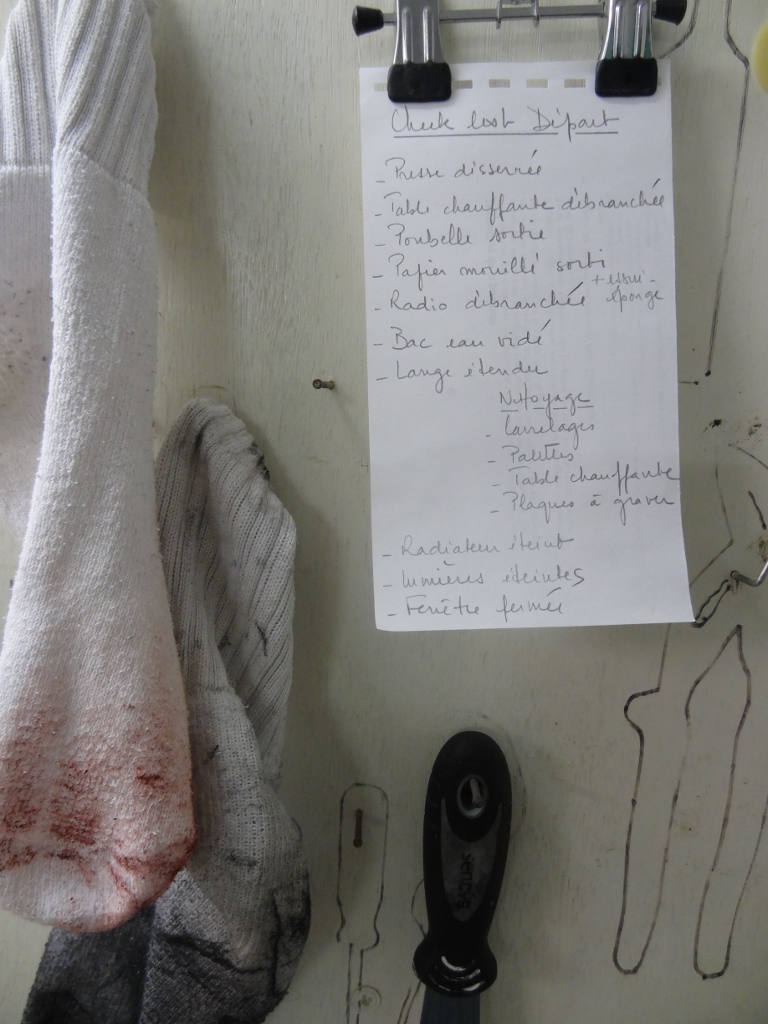 Check list Départ
- Presse desserrée
- Table chauffante débranchée
- Poubelle sortie
- Papier mouillé sorti
- Radio débranchée + essui-
éponge
- Bac eau vidé
- Lange étendu
Nettoyage
- Carrelages
- Palettes
- Table chauffante
- Plaques à graver
- Radiateur éteint
- lumières éteintes
- Fenêtre fermée